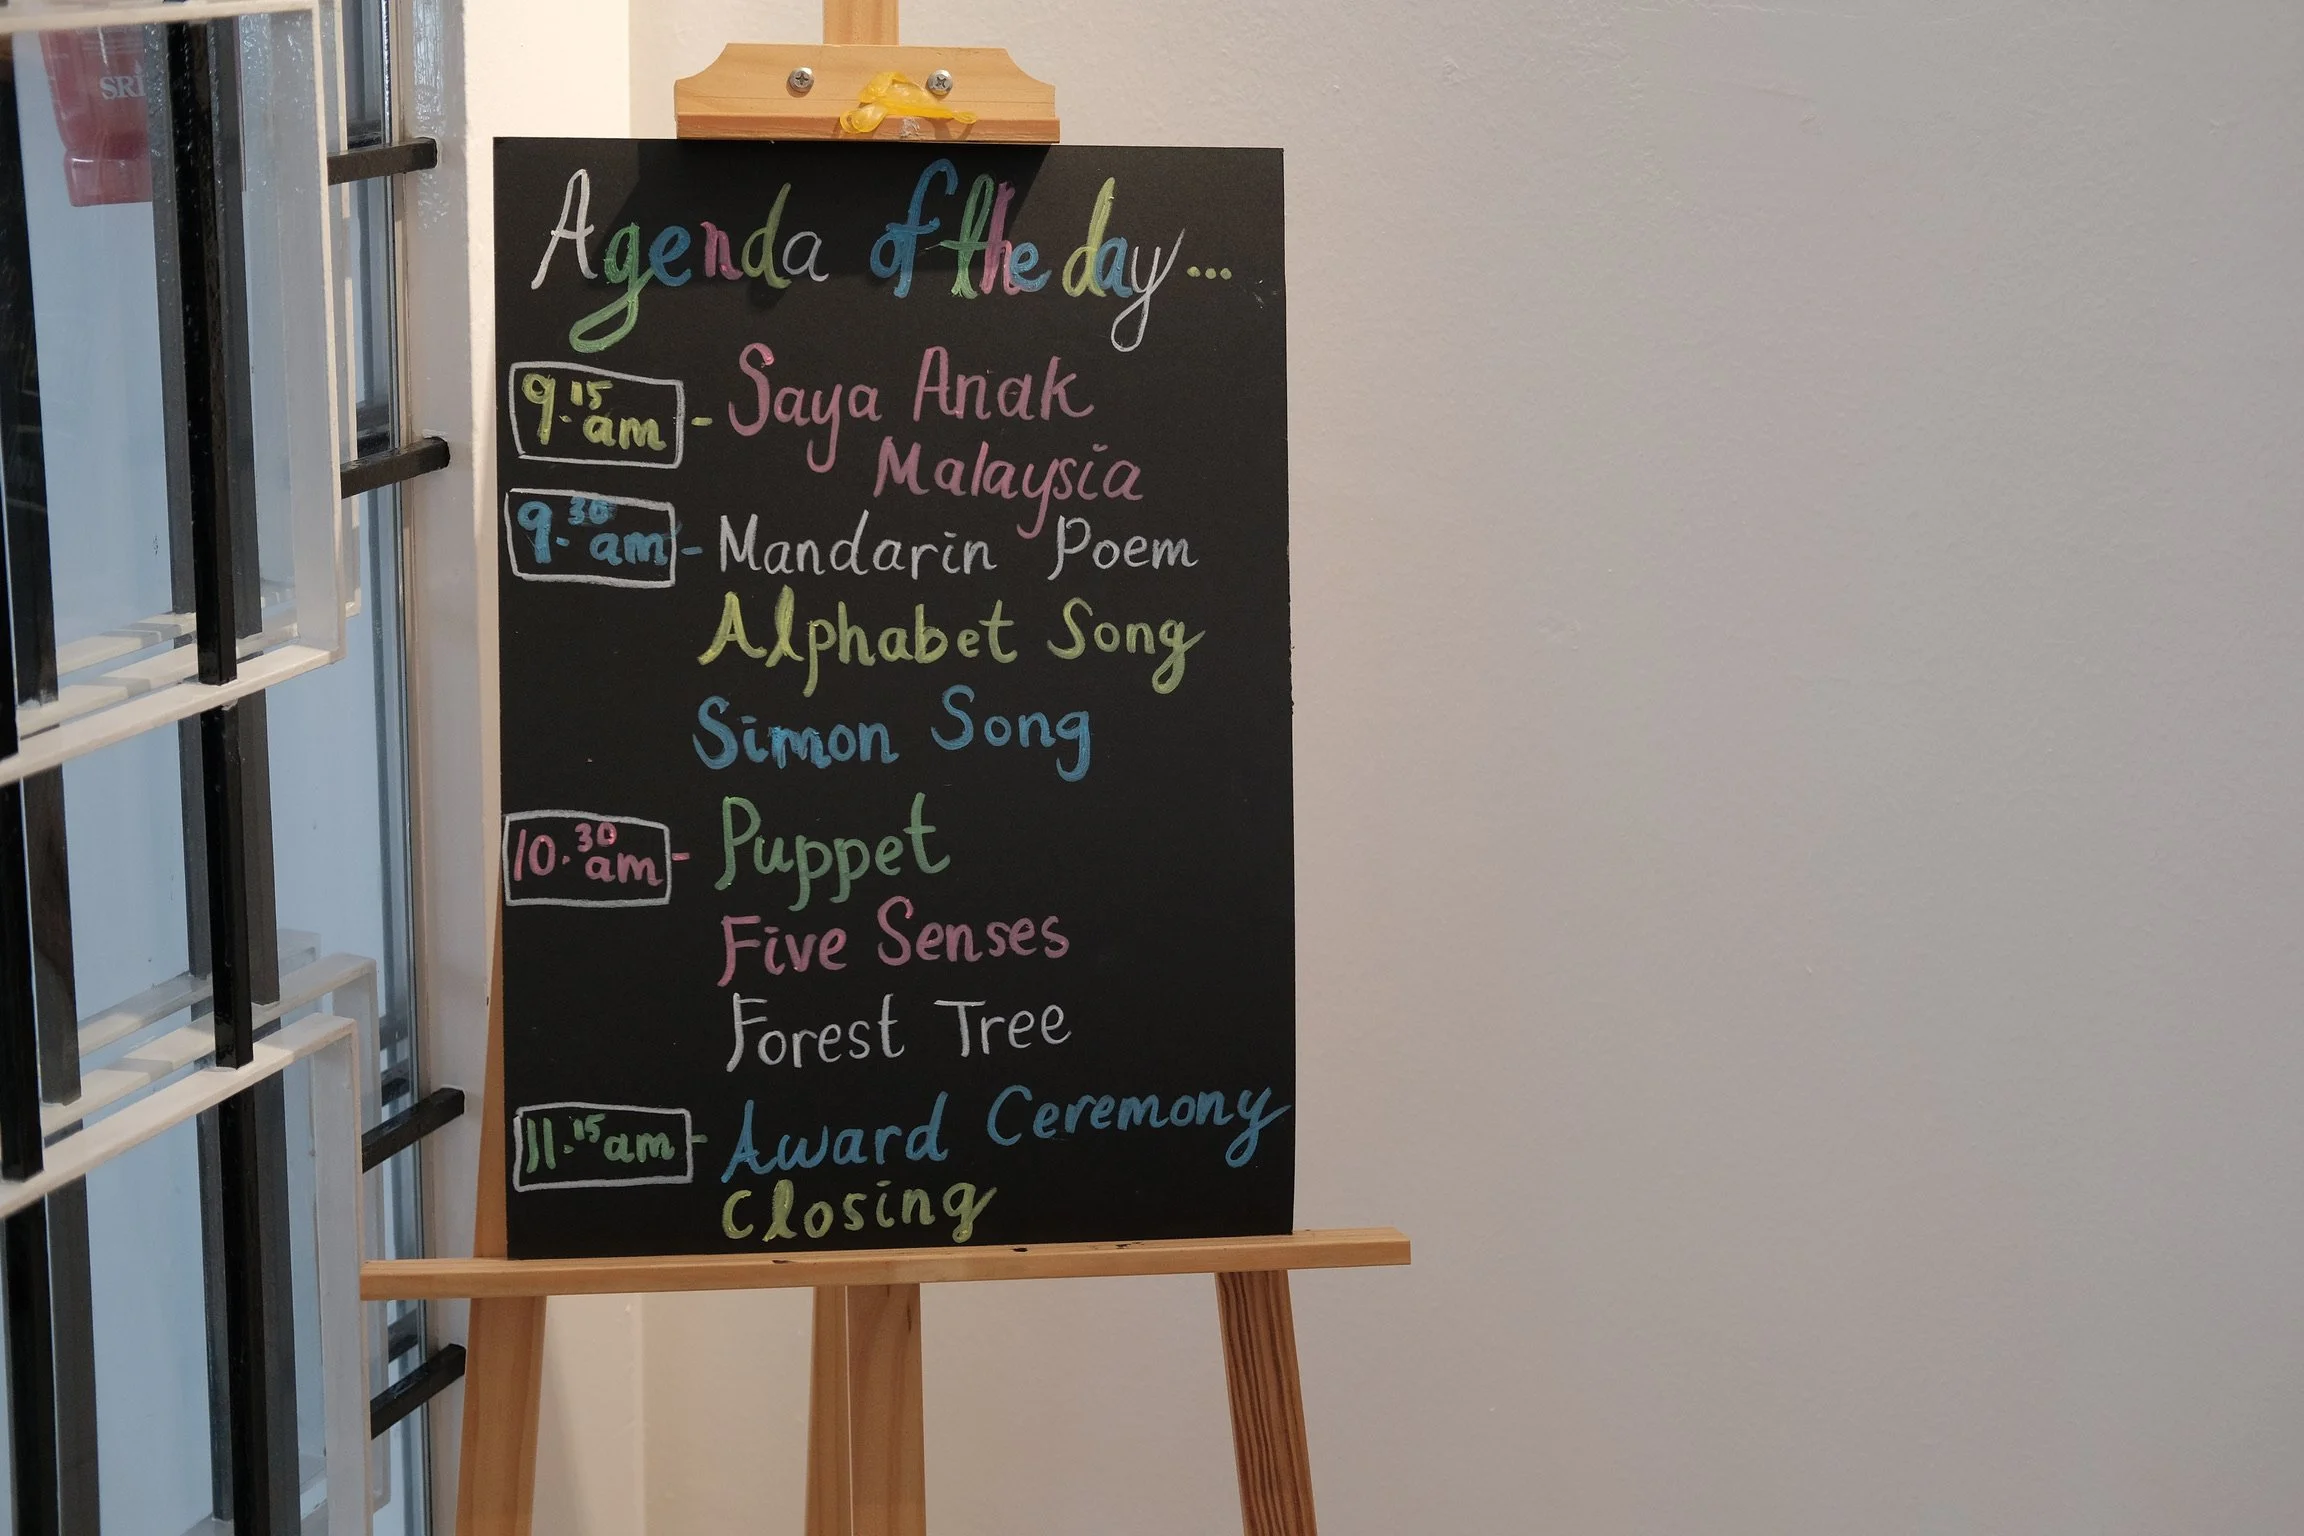 SRI
Agenda of the day...
9.15 am - Saya Anak
Malaysia
9.30 am - Mandarin Poem
Alphabet Song
Simon Song
10.30 am - Puppet
Five Senses
Forest Tree
11.15 am - Award Ceremony
Closing